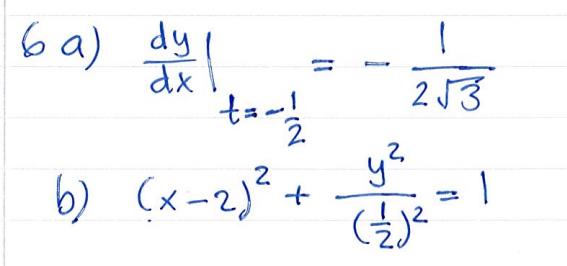 6 a) dy/dx |_{t = -1/2} = - 1/(2√3)
b) (x-2)² + y²/(1/2)² = 1